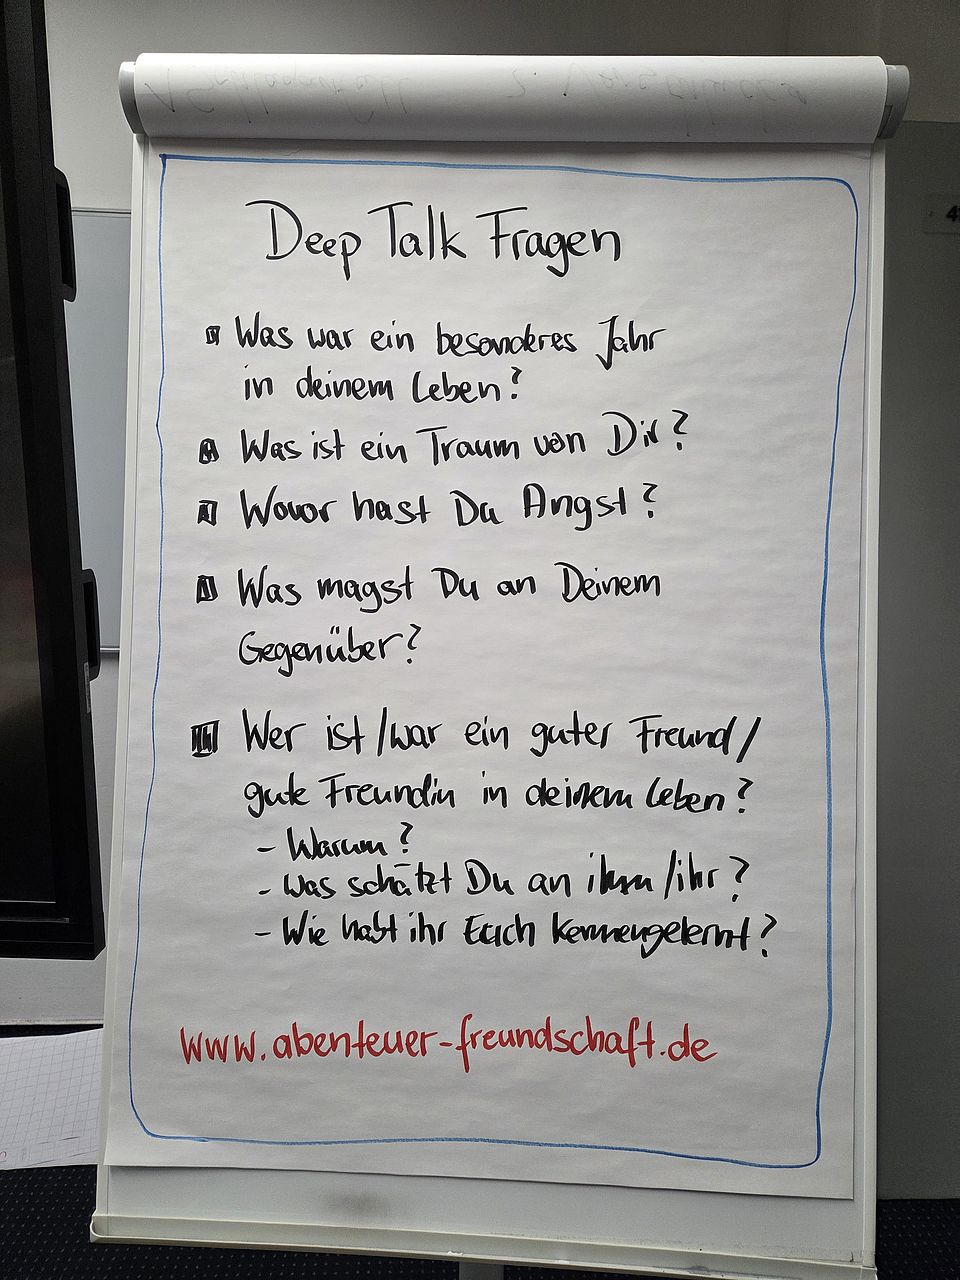 Deep Talk Fragen
Was war ein besonderes Jahr
in deinem Leben?
Was ist ein Traum von Dir?
Wovor hast Du Angst?
Was magst Du an Deinem
Gegenüber?
Wer ist/war ein guter Freund/
gute Freundin in deinem Leben?
- Warum?
- Was schätzt Du an ihm/ihr?
- Wie habt ihr Euch kennengelernt?
www.abenteuer-freundschaft.de